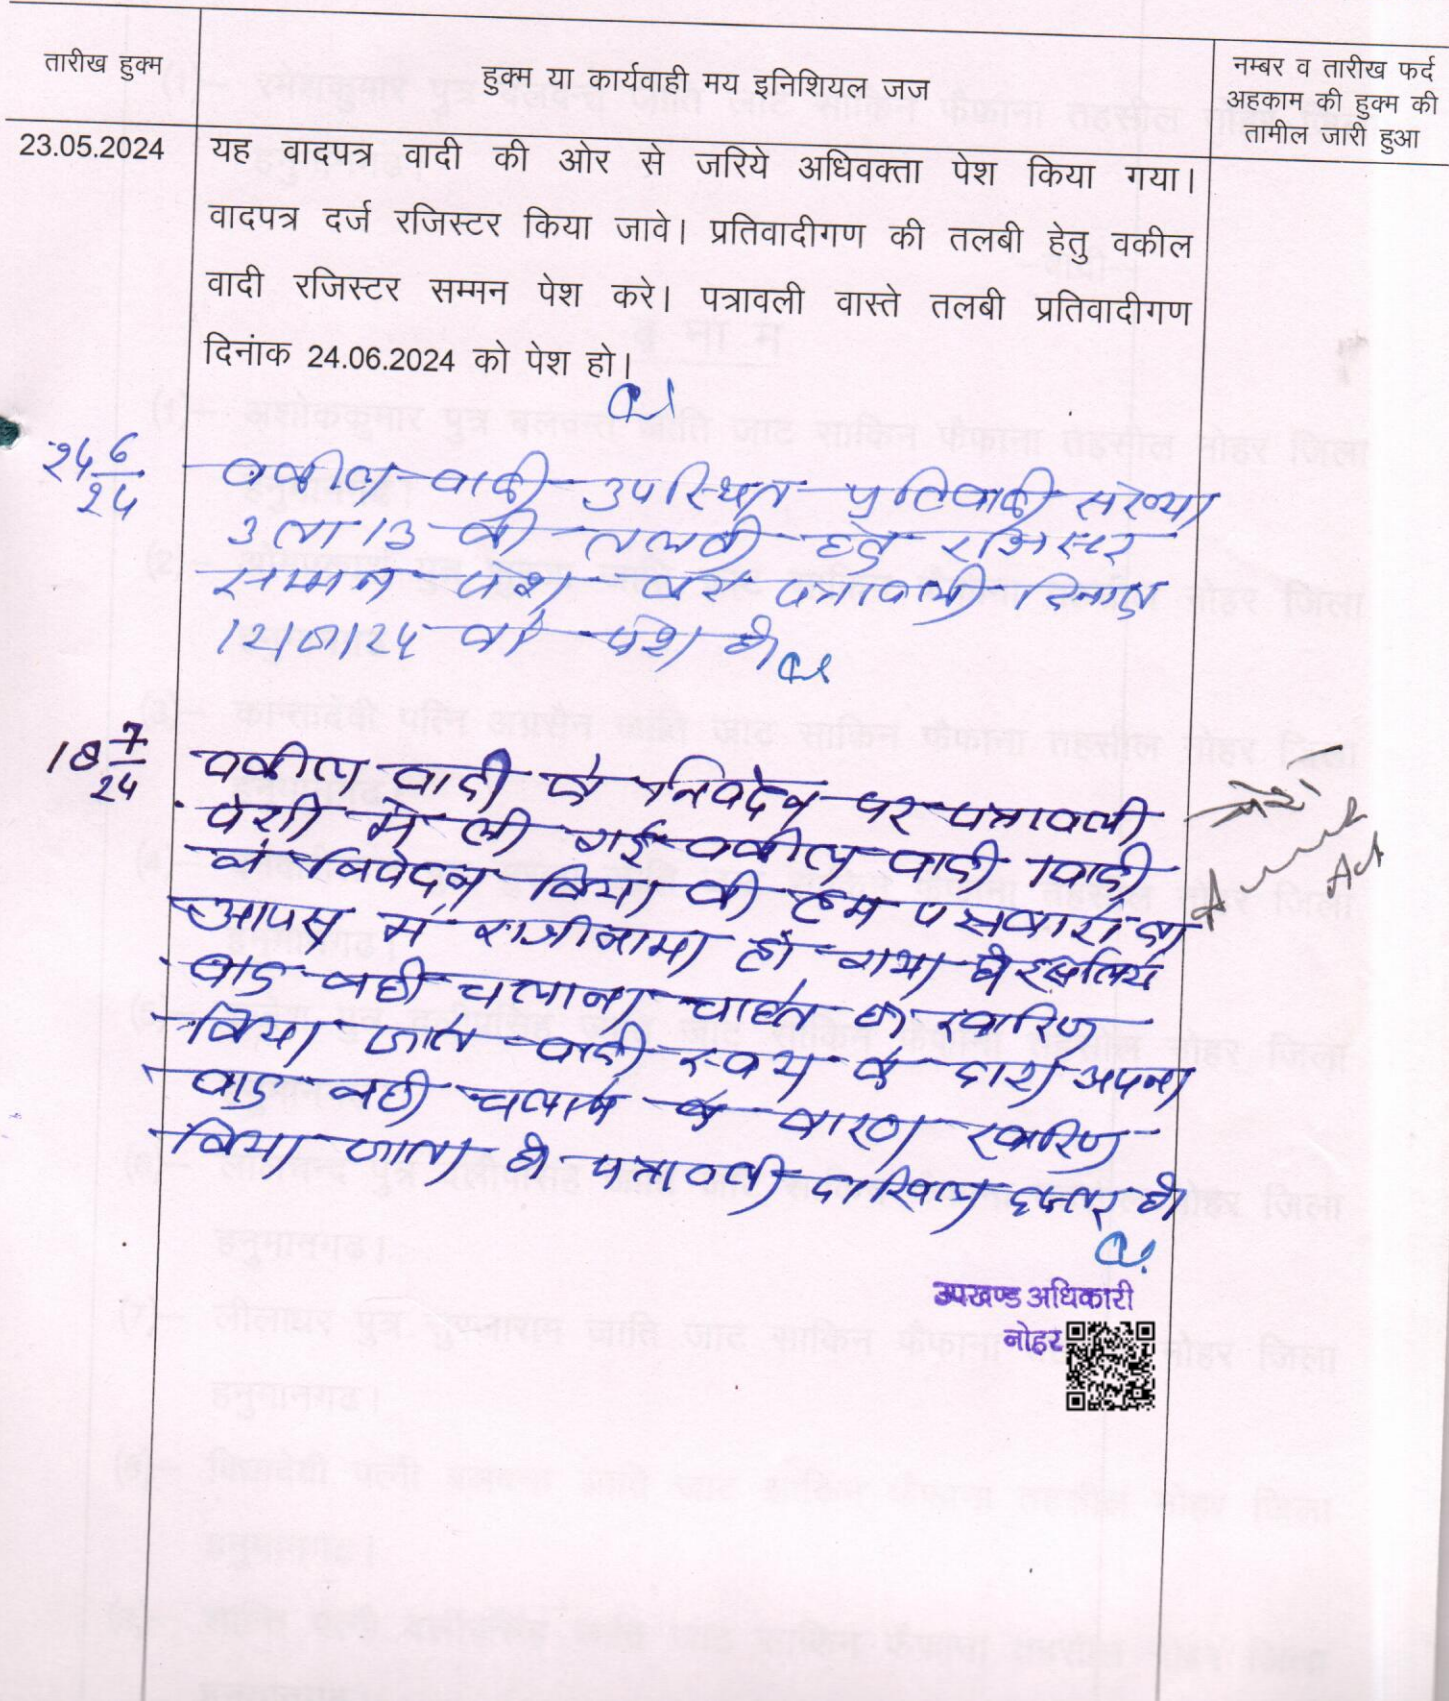 तारीख हुक्म
हुक्म या कार्यवाही मय इनिशियल जज
नम्बर व तारीख फर्द
अहकाम की हुक्म की
तामील जारी हुआ
23.05.2024
यह वादपत्र वादी की ओर से जरिये अधिवक्ता पेश किया गया।
वादपत्र दर्ज रजिस्टर किया जावे। प्रतिवादीगण की तलबी हेतु वकील
वादी रजिस्टर सम्मन पेश करे। पत्रावली वास्ते तलबी प्रतिवादीगण
दिनांक 24.06.2024 को पेश हो।
24 6/24
वकील वादी उपस्थित प्रतिवादी संख्या
3 ता 13 की तलबी हेतु रजिस्टर
सम्मन पेश करे पत्रावली दिनांक
को पेश हो
18 7/24
वकील वादी के निवेदन पर पत्रावली
पेशी में ली गई वकील वादी वादी
ने निवेदन किया की हम पक्षकारों का
आपस में राजीनामा हो गया है इसलिये
वाद नही चलाना चाहते खारिज
किया जाते वादी स्वयं के द्वारा अपना
वाद नही चलाने के कारण खारिज
किया जाता है पत्रावली दाखिल दफ्तर हो
उपखण्ड अधिकारी
नोहर